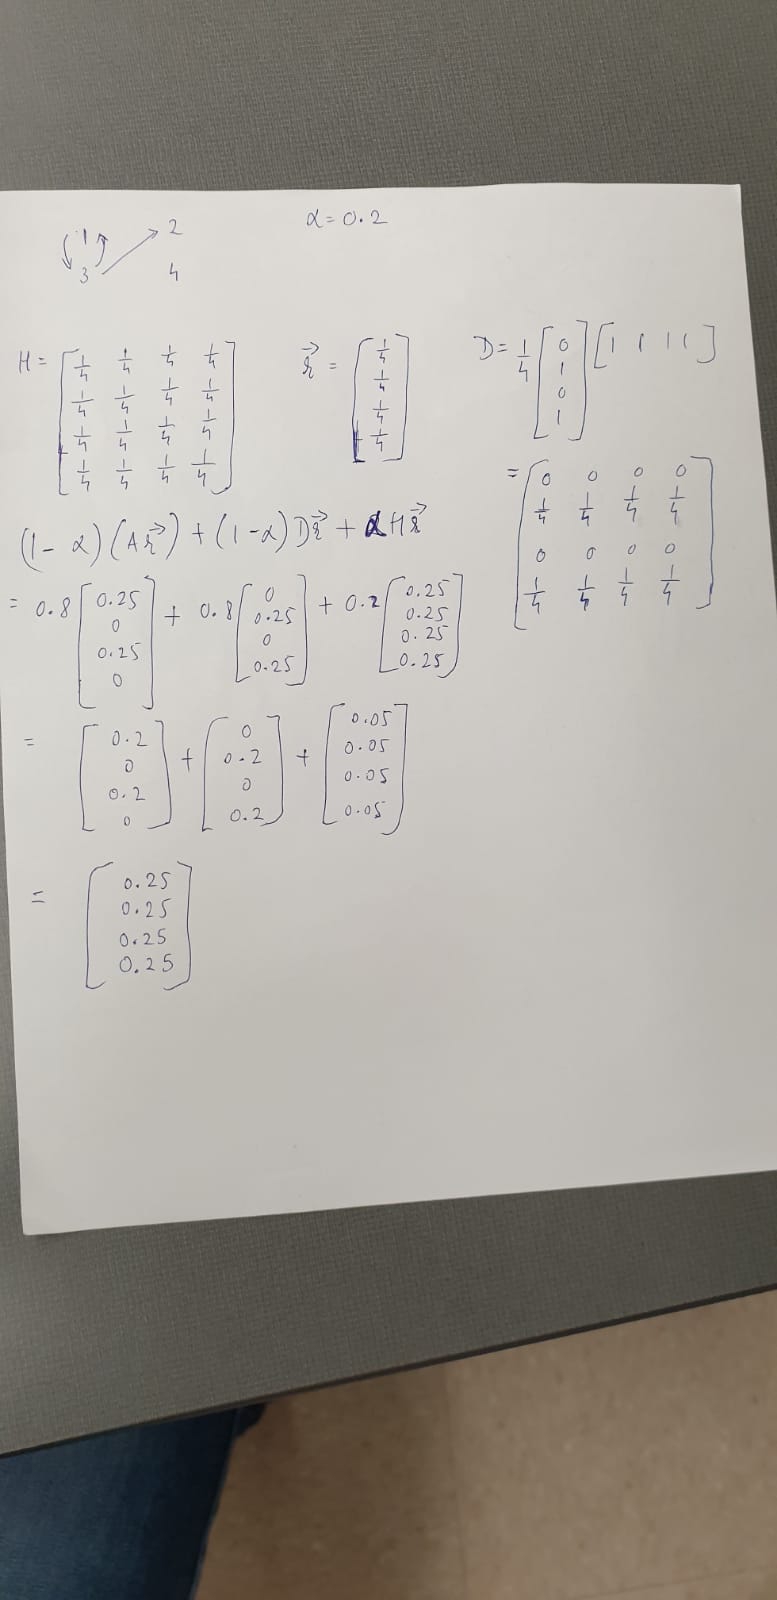 1 2 α = 0.2
3 4
H = [ 1/4 1/4 1/4 1/4
1/4 1/4 1/4 1/4
1/4 1/4 1/4 1/4
1/4 1/4 1/4 1/4 ]
r⃗ = [ 1/4
1/4
1/4
1/4 ]
D = 1/4 [ 0
1
0
1 ] [ 1 1 1 1 ]
= [ 0 0 0 0
1/4 1/4 1/4 1/4
0 0 0 0
1/4 1/4 1/4 1/4 ]
(1 - α) (A r⃗) + (1 - α) D r⃗ + α H r⃗
= 0.8 [ 0.25 + 0.8 [ 0 + 0.2 [ 0.25
0 0.25 0.25
0.25 0 0.25
0 ] 0.25 ] 0.25 ]
= [ 0.2 + [ 0 + [ 0.05
0 0.2 0.05
0.2 0 0.05
0 ] 0.2 ] 0.05 ]
= [ 0.25
0.25
0.25
0.25 ]